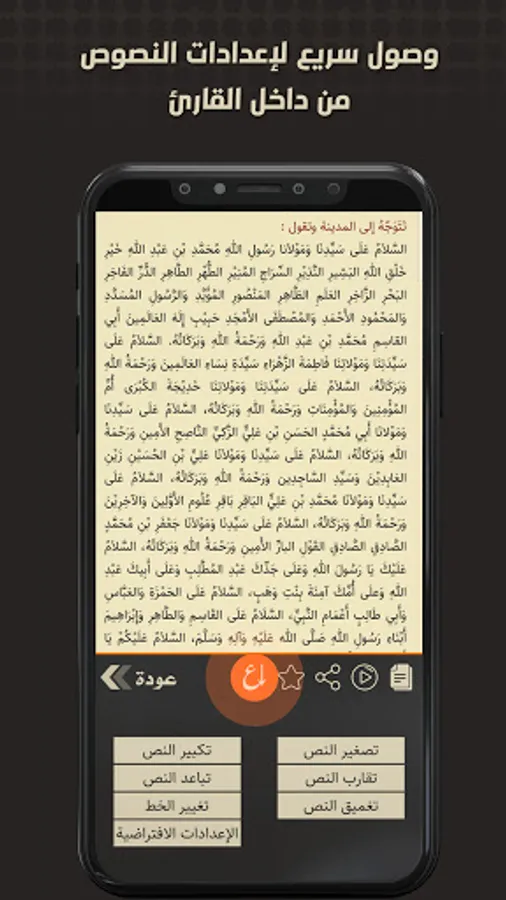 وصول سريع لإعدادات النصوص
من داخل القارئ
تَتَوَجَّهُ إلى المدينة وتقول :
السَّلَامُ عَلَى سَيِّدِنَا وَمَوْلَانَا رَسُولِ اللهِ مُحَمَّدِ بْنِ عَبْدِ اللهِ خَيْرِ
خَلْقِ اللهِ البَشِيرِ النَّذِيْرِ السِّرَاجِ المُنِيْرِ الطُّهْرِ الطَّاهِرِ الدُّرِّ الفَاخِرِ
البَحْرِ الزَّاخِرِ العَلَمِ الظَّاهِرِ المَنْصُورِ المُؤَيَّدِ وَالرَّسُولِ المُسَدَّدِ
وَالمَحْمُودِ الأَحْمَدِ وَالمُصْطَفَى الأَمْجَدِ حَبِيْبِ إِلَهِ العَالَمِينَ أَبِي
القَاسِمِ مُحَمَّدِ بْنِ عَبْدِ اللهِ وَرَحْمَةُ اللهِ وَبَرَكَاتُهُ، السَّلَامُ عَلَى
سَيِّدَتِنَا وَمَوْلَاتِنَا فَاطِمَةَ الزَّهْرَاءِ سَيِّدَةِ نِسَاءِ العَالَمِينَ وَرَحْمَةُ اللهِ
وَبَرَكَاتُهُ، السَّلَامُ عَلَى سَيِّدَتِنَا وَمَوْلَاتِنَا خَدِيْجَةَ الكُبْرَى أُمِّ
المُؤْمِنِينَ وَالمُؤْمِنَاتِ وَرَحْمَةُ اللهِ وَبَرَكَاتُهُ، السَّلَامُ عَلَى سَيِّدِنَا
وَمَوْلَانَا أَبِي مُحَمَّدٍ الحَسَنِ بْنِ عَلِيٍّ الزَّكِيِّ النَّاصِحِ الأَمِينِ وَرَحْمَةُ
اللهِ وَبَرَكَاتُهُ، السَّلَامُ عَلَى سَيِّدِنَا وَمَوْلَانَا عَلِيِّ بْنِ الحُسَيْنِ زَيْنِ
العَابِدِيْنَ وَسَيِّدِ السَّاجِدِينَ وَرَحْمَةُ اللهِ وَبَرَكَاتُهُ، السَّلَامُ عَلَى
سَيِّدِنَا وَمَوْلَانَا مُحَمَّدِ بْنِ عَلِيٍّ البَاقِرِ بَاقِرِ عُلُومِ الأَوَّلِينَ وَالآخِرِيْنَ
وَرَحْمَةُ اللهِ وَبَرَكَاتُهُ، السَّلَامُ عَلَى سَيِّدِنَا وَمَوْلَانَا جَعْفَرِ بْنِ مُحَمَّدٍ
الصَّادِقِ الصَّادِقِ القَوْلِ البَارِّ الأَمِينِ وَرَحْمَةُ اللهِ وَبَرَكَاتُهُ، السَّلَامُ
عَلَيْكَ يَا رَسُولَ اللهِ وَعَلَى جَدِّكَ عَبْدِ المُطَّلِبِ وَعَلَى أَبِيكَ عَبْدِ
اللهِ وَعلَى أُمِّكَ آمِنَةَ بِنْتِ وَهَبٍ، السَّلَامُ عَلَى الحَمْزَةِ وَالعَبَّاسِ
وَأَبِي طَالِبٍ أَعْمَامِ النَّبِيِّ، السَّلَامُ عَلَى القَاسِمِ وَالطَّاهِرِ وَإِبْرَاهِيمَ
أَبْنَاءِ رَسُولِ اللهِ صَلَّى الله عَلَيْهِ وَآلِهِ وَسَلَّمَ، السَّلَامُ عَلَيْكُمْ يَا
عودة
تصغير النص
تكبير النص
تقارب النص
تباعد النص
تغميق النص
تغيير الخط
الإعدادات الافتراضية